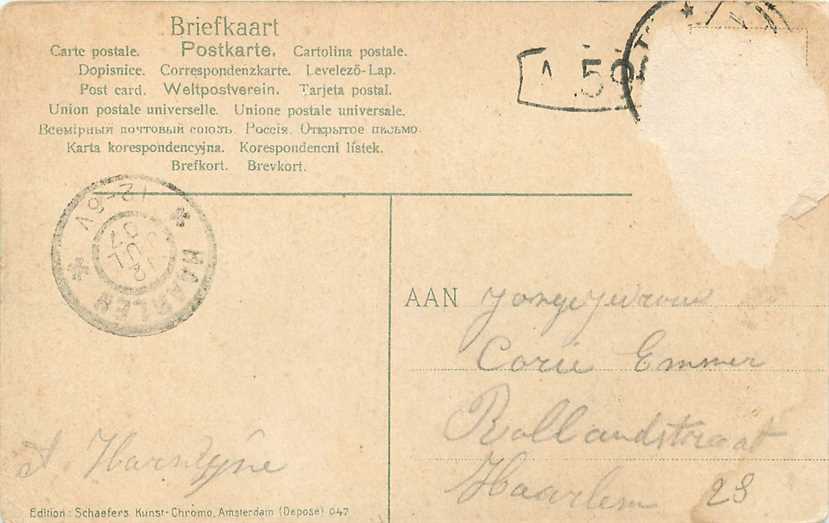 Briefkaart
Carte postale. Postkarte. Cartolina postale.
Dopisnice. Correspondenzkarte. Levelező-Lap.
Post card. Weltpostverein. Tarjeta postal.
Union postale universelle. Unione postale universale.
Всемірный почтовый союзъ. Россія. Открытое письмо.
Karta korespondencyjna. Korespondencni lístek.
Brefkort. Brevkort.
HAARLEM
12-8V
12
JUL
07
50
AAN Jongejuvrouw
Corie Emmer
Rollandstraat
Haarlem 28
A.
Edition: Schaefers Kunst-Chromo, Amsterdam (Deposé) 047